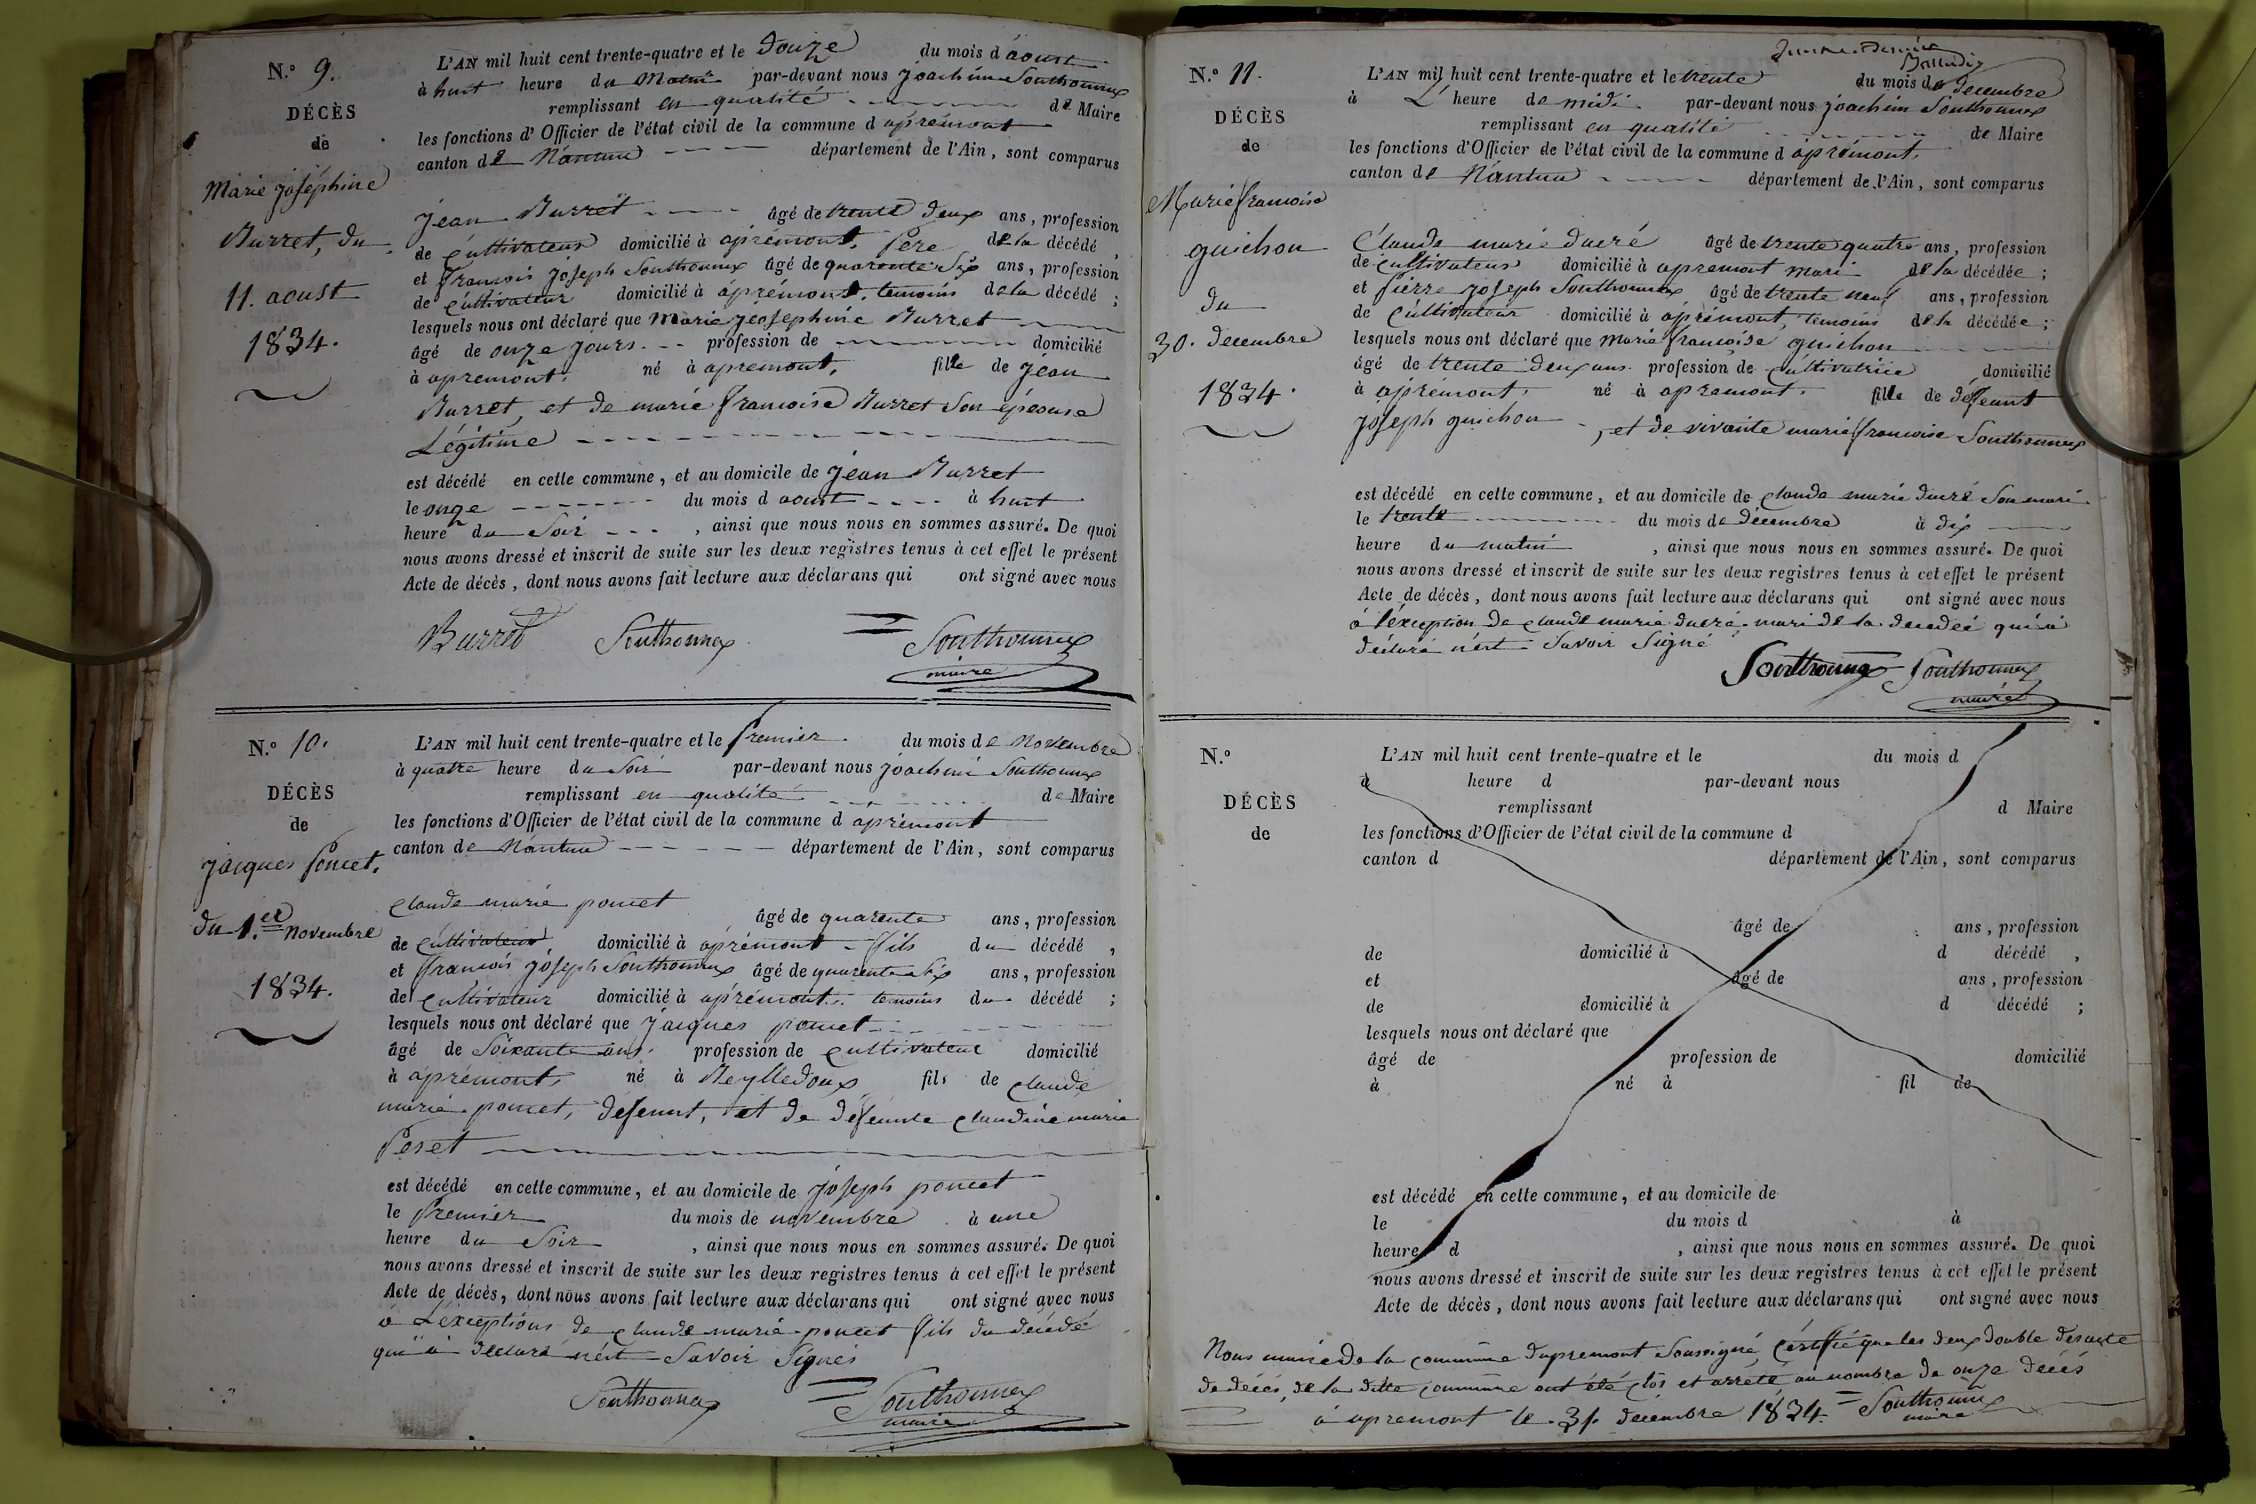 N.º 9.
DÉCÈS
de
Marie joséphine
Burret, du
11. aoust
1834.
L'AN mil huit cent trente-quatre et le douze du mois d'aoust
à huit heure du Matin par-devant nous joachim Southonnax
remplissant en qualité de Maire
les fonctions d'Officier de l'état civil de la commune d'aprémont
canton de Nantua département de l'Ain, sont comparus
jean Burret âgé de trente deux ans, profession
de cultivateur domicilié à aprémont, Pere de la décédé,
et francois joseph Southonnax âgé de quarente Six ans, profession
de cultivateur domicilié à aprémont, temoins de la décédé;
lesquels nous ont déclaré que Marie jeosephine Burret
âgé de onze jours profession de domicilié
à apremont. né à apremont, fille de jean
Burret, et de marie francoise Burret Son épeouse
Légitime
est décédé en cette commune, et au domicile de jean Burret
le onze du mois d aoust à huit
heure du Soir, ainsi que nous nous en sommes assuré. De quoi
nous avons dressé et inscrit de suite sur les deux registres tenus à cet effet le présent
Acte de décès, dont nous avons fait lecture aux déclarans qui ont signé avec nous
Burret Southonnax Southonnax
maire
N.º 10.
DÉCÈS
de
jacques Poncet,
du 1.er novembre
1834.
L'AN mil huit cent trente-quatre et le Premier du mois de Novembre
à quatre heure du Soir par-devant nous joachim Southonnax
remplissant en qualité de Maire
les fonctions d'Officier de l'état civil de la commune d aprémont
canton de Nantua département de l'Ain, sont comparus
claude marie poncet âgé de quarente ans, profession
de cultivateur, domicilié à aprémont fils du décédé,
et francois joseph Southonnax âgé de quarente Six ans, profession
de cultivateur domicilié à aprémont. temoins du décédé;
lesquels nous ont déclaré que jacques poncet
âgé de Soixante ans. profession de cultivateur domicilié
à aprémont, né à Beylledoux fils de claude
marie poncet, défeunt, et de défeunte claudine marie
Peret
est décédé en cette commune, et au domicile de joseph poncet
le Premier du mois de novembre à une
heure du Soir, ainsi que nous nous en sommes assuré. De quoi
nous avons dressé et inscrit de suite sur les deux registres tenus à cet effet le présent
Acte de décès, dont nous avons fait lecture aux déclarans qui ont signé avec nous
à L'exceptions de claude marie poncet fils du décédé
qui à déclaré nêt Savoir Signés
Southonnax Southonnax
maire
N.º 11.
DÉCÈS
de
Marie francoise
guichon
du
30. decembre
1834.
L'AN mil huit cent trente-quatre et le trente du mois de Decembre
à L' heure de midi par-devant nous joachim Southonnax
remplissant en qualité de Maire
les fonctions d'Officier de l'état civil de la commune d aprémont,
canton de Nantua département de l'Ain, sont comparus
Claude marie ducré âgé de trente quatre ans, profession
de cultivateur domicilié à apremont mari de la décédée;
et Pierre joseph Southonnax âgé de trente neuf ans, profession
de Cultivateur domicilié à aprémont, temoins de la décédée;
lesquels nous ont déclaré que marie francoise guichon
âgé de trente deux ans profession de cultivatrice domicilié
à aprémont, né à apremont. fille de défeunt
joseph guichon, et de vivante marie francoise Southonnax
est décédé en cette commune, et au domicile de claude marie ducré Son mari
le trente du mois de décembre à dix
heure du matin, ainsi que nous nous en sommes assuré. De quoi
nous avons dressé et inscrit de suite sur les deux registres tenus à cet effet le présent
Acte de décès, dont nous avons fait lecture aux déclarans qui ont signé avec nous
à l'exception de claude marie ducré mari de la decedeé qui à
déclaré nêt Savoir Signé
Southonnax Southonnax
maire
N.º
DÉCÈS
de
L'AN mil huit cent trente-quatre et le du mois d
à heure d par-devant nous
remplissant d Maire
les fonctions d'Officier de l'état civil de la commune d
canton d département de l'Ain, sont comparus
âgé de ans, profession
de domicilié à d décédé,
et âgé de ans, profession
de domicilié à d décédé;
lesquels nous ont déclaré que
âgé de profession de domicilié
à né à fil de
est décédé en cette commune, et au domicile de
le du mois d à
heure d, ainsi que nous nous en sommes assuré. De quoi
nous avons dressé et inscrit de suite sur les deux registres tenus à cet effet le présent
Acte de décès, dont nous avons fait lecture aux déclarans qui ont signé avec nous
Nous maire de la commune d'apremont Soussigné, Certifié que les deux double des acte
de décés, de la ditte commune ont été clos et arrété au nombre de onze décés
à apremont le 31. decembre 1834. Southonnax
maire